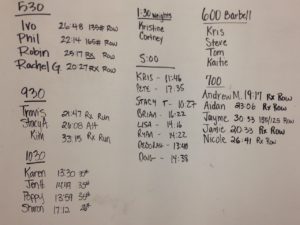 530
Ivo 26:48 135# Row
Phil 22:14 165# Row
Robin 25:17 Rx Row
Rachel G. 20:27 Rx Row
930
Travis 21:47 Rx Run
Stacy A 26:08 Alt
Kim 33:15 Rx Run
1030
Karen 13:30
Jen H 14:19 35#
Poppy 13:59 35#
Sharon 17:12
1:30 Weights
Kristine
Cortney
5:00
KRIS - 11:46
PETE - 17:35
STACY T - 10:27
BRIAN - 16:22
LISA - 14:16
RYAN - 14:22
DEBORAH - 13:40
DOUG - 14:38
600 Barbell
Kris
Steve
Tom
Katie
700
Andrew M. 19:17 Rx Row
Aidan 23:06 Rx Row
Jayme 30:33 135/125 Row
Jamie 20:33 Rx Row
Nicole 26:41 Rx Row